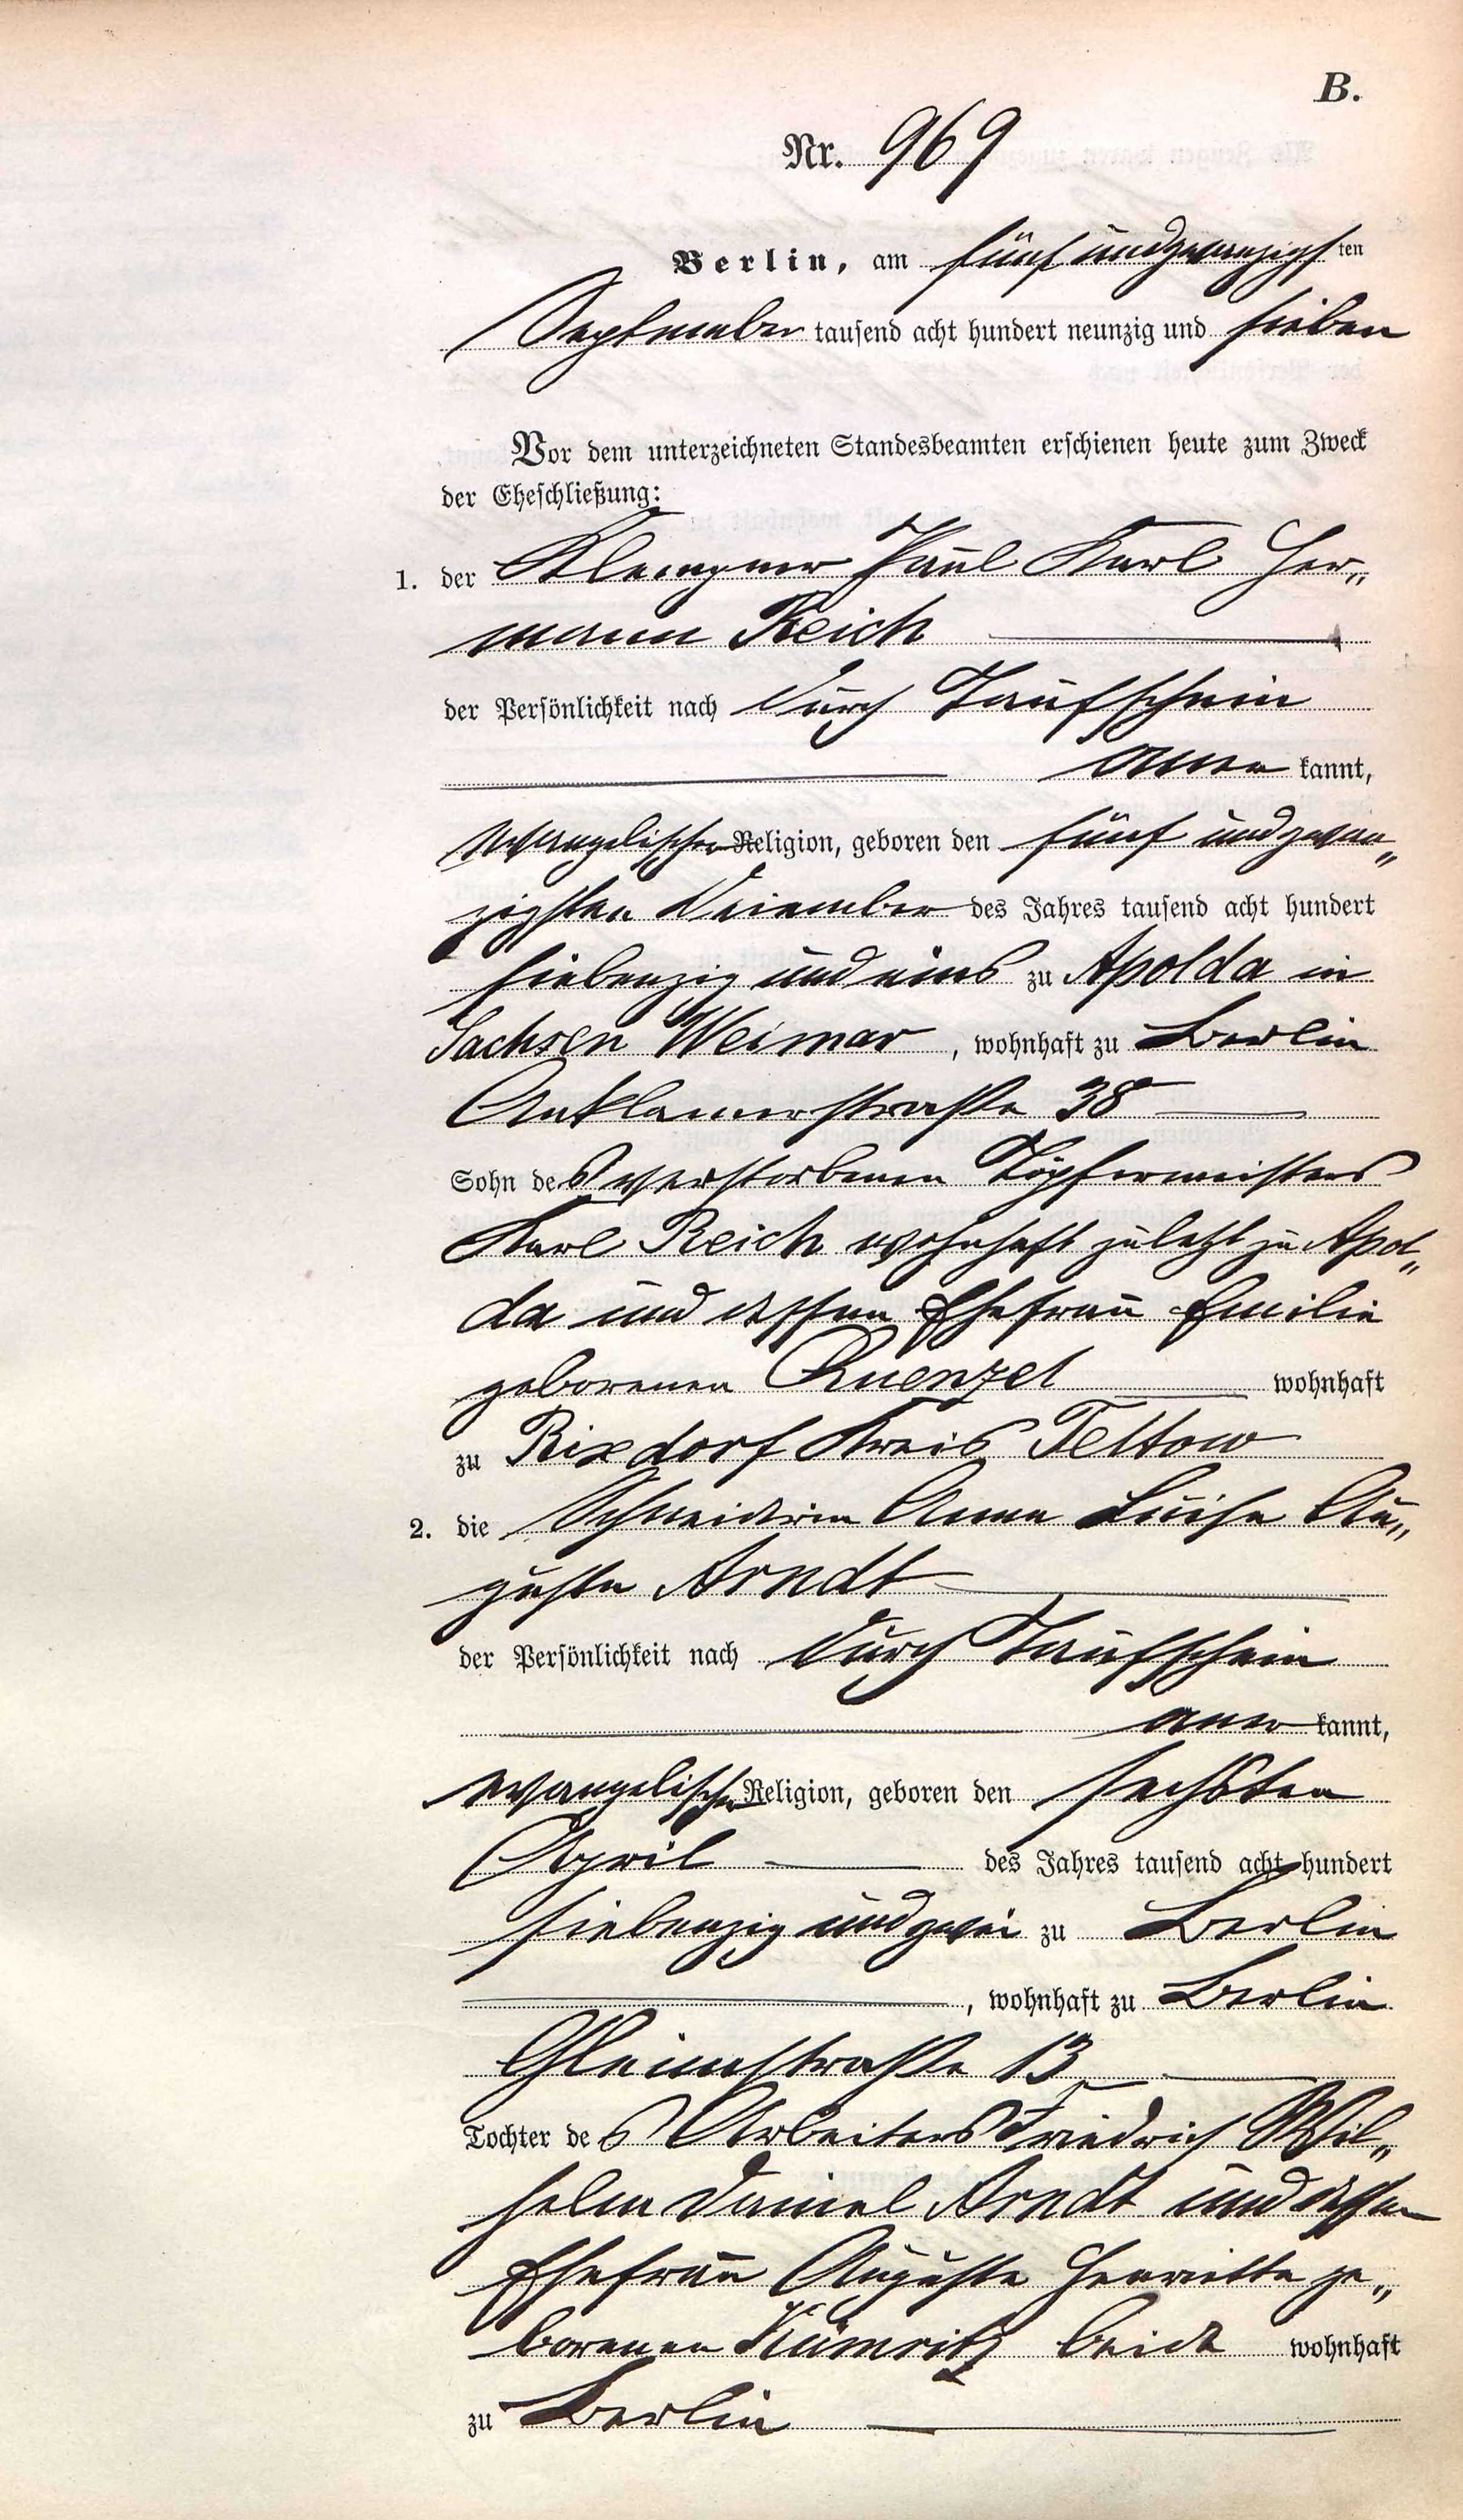 B.
Nr. 969
Berlin, am fünf und zwanzigsten
September tausend acht hundert neunzig und sieben
Vor dem unterzeichneten Standesbeamten erschienen heute zum Zweck
der Eheschließung:
1. der Klempner Paul Karl Her„
mann Reich
der Persönlichkeit nach durch Taufschein
aner kannt,
evangelischer Religion, geboren den fünf und zwan„
zigsten Dezember des Jahres tausend acht hundert
siebenzig und eins zu Apolda in
Sachsen Weimar, wohnhaft zu Berlin
Anklamerstraße 38
Sohn des verstorbenen Töpfermeisters
Karl Reich wohnhaft zuletzt zu Apol„
da und dessen Ehefrau Emilie
geborenen Kuenzel wohnhaft
zu Rixdorf Kreis Teltow
2. die Schneiderin Anna Luise Au„
guste Arndt
der Persönlichkeit nach durch Taufschein
aner kannt,
evangelischer Religion, geboren den sechsten
April des Jahres tausend acht hundert
siebenzig und zwei zu Berlin
, wohnhaft zu Berlin
Gleimstraße 13
Tochter des Arbeiters Friedrich Wil„
helm Daniel Arndt und dessen
Ehefrau Auguste Henriette ge„
borenen Kümritz beide wohnhaft
zu Berlin